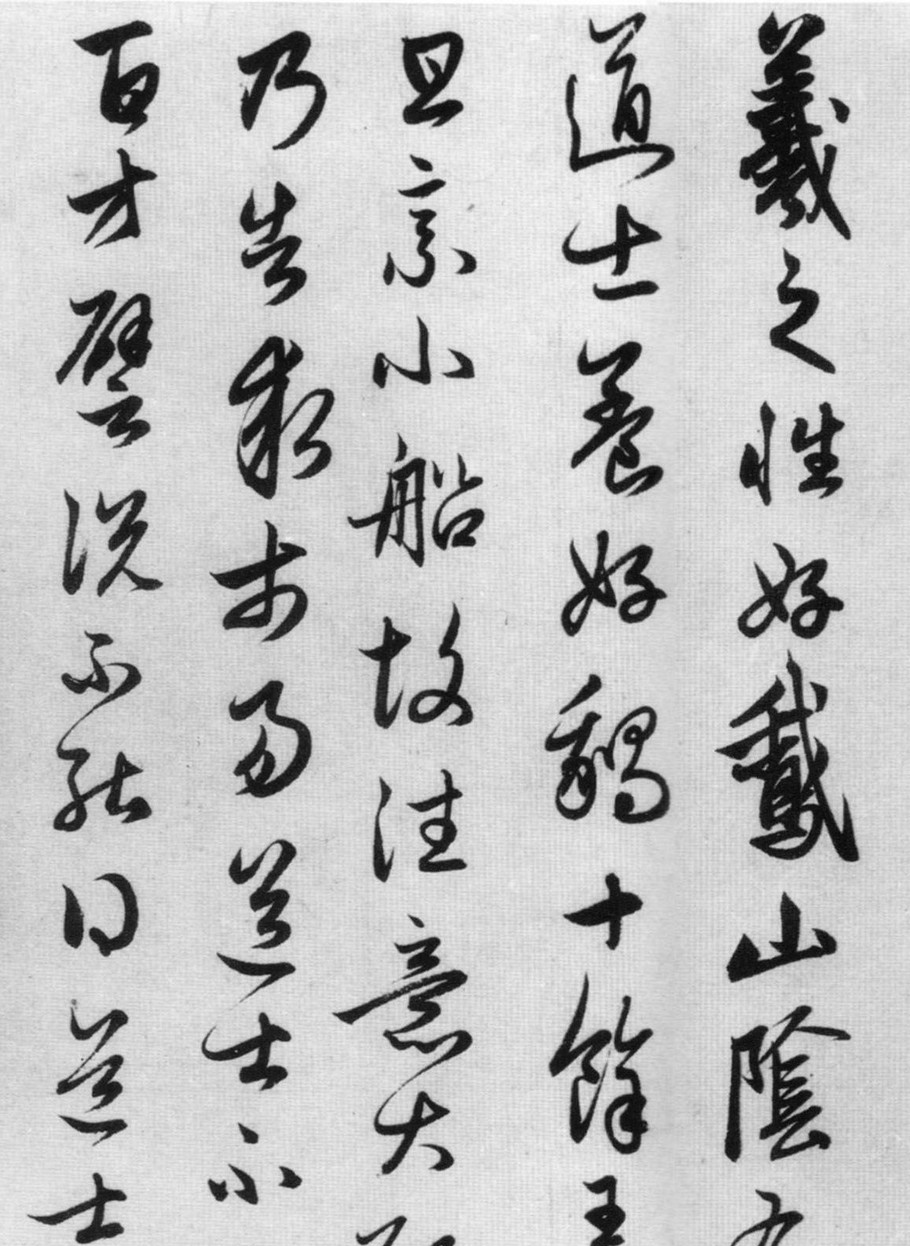 羲之性好鵞山陰
道士養好鵝十餘王
旦乗小船故往意大
乃告求市易道士不
百方譬說不能道士